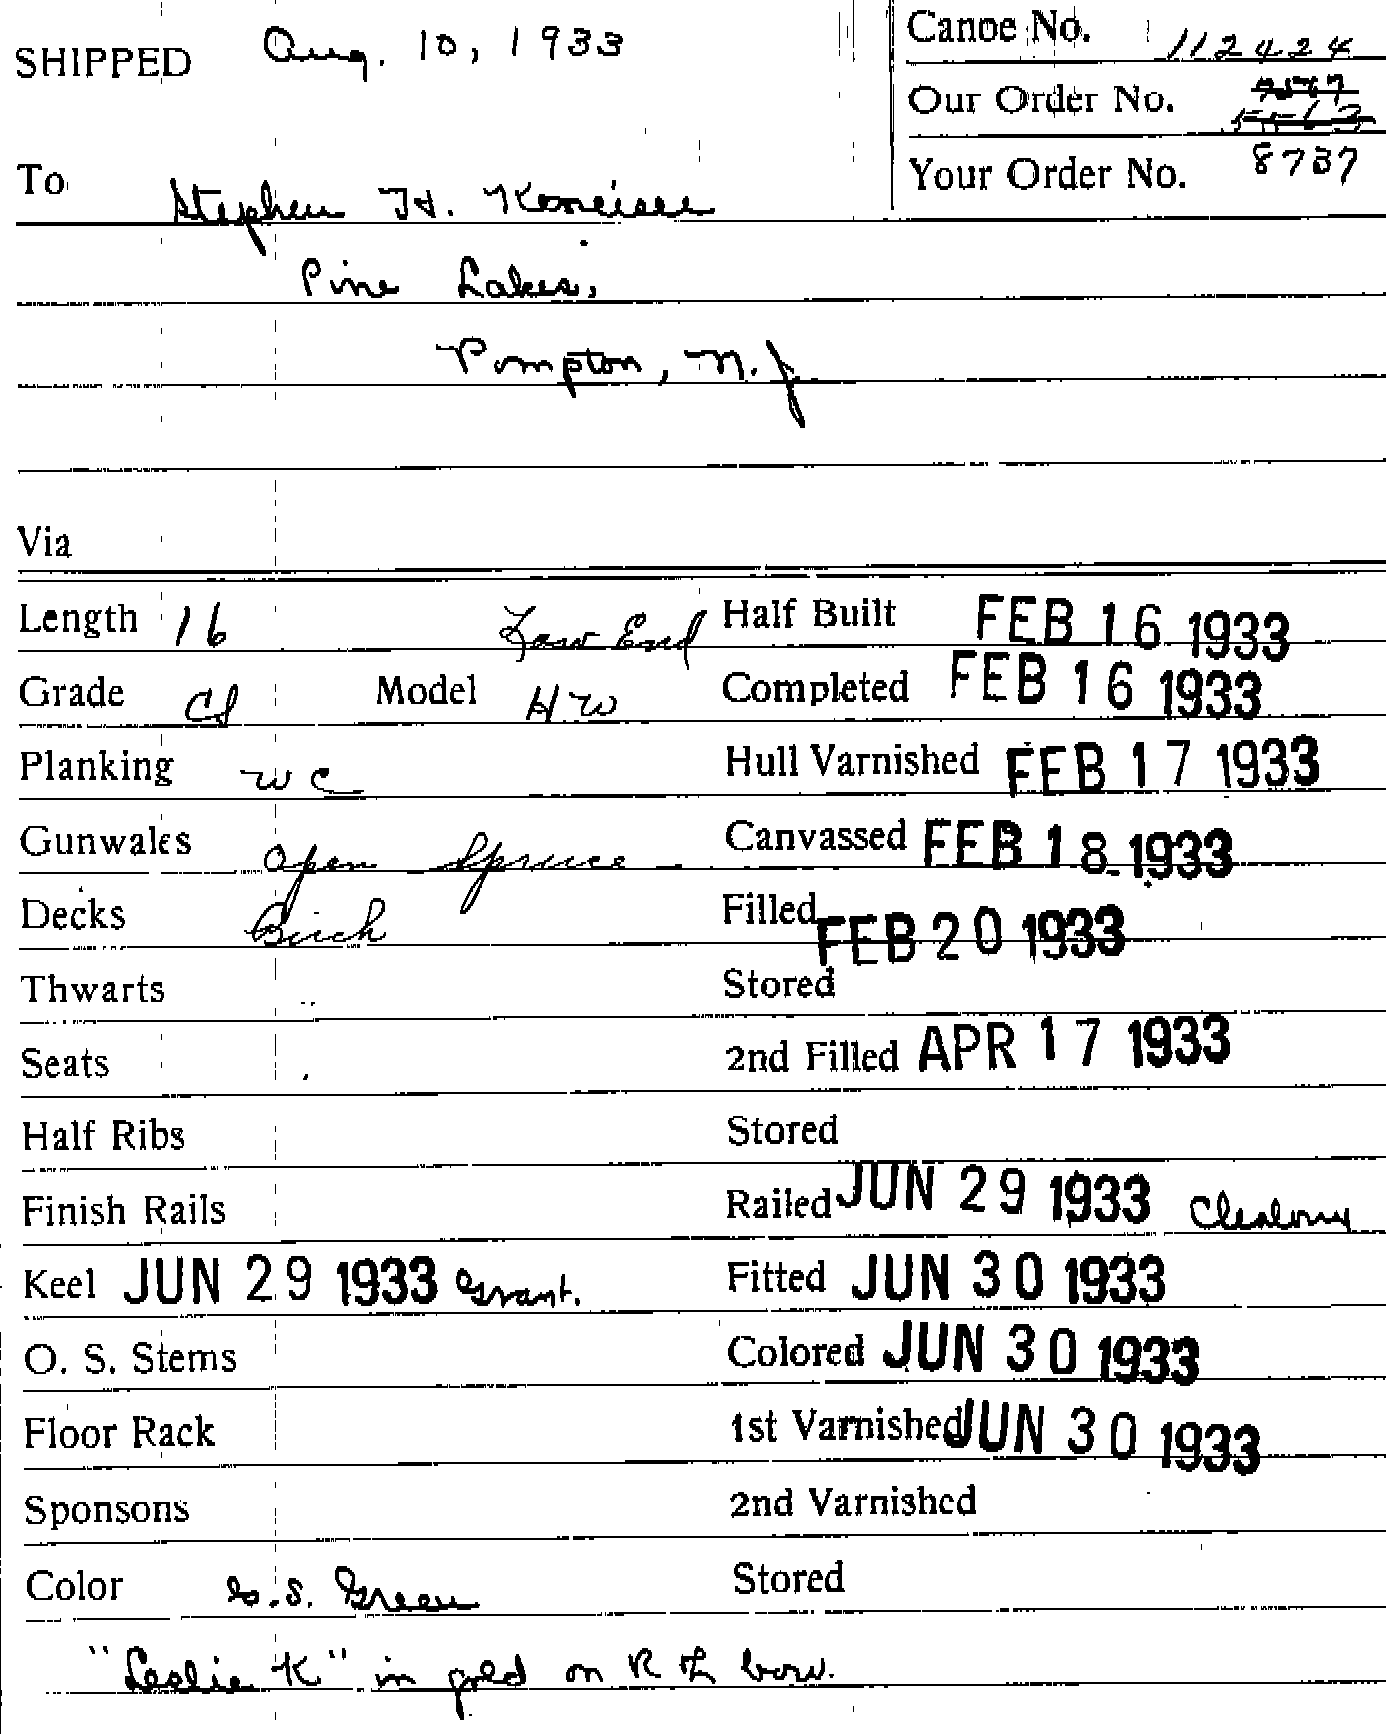 SHIPPED Aug. 10, 1933
Canoe No. 112424
Our Order No.
Your Order No. 8737
To Stephen H.
Pine Lakes,
Pompton, N. J.
Via
Length 16 Low End Half Built FEB 16 1933
Grade CS Model HW Completed FEB 16 1933
Planking WC Hull Varnished FEB 17 1933
Gunwales Open Spruce Canvassed FEB 18 1933
Decks Birch Filled FEB 20 1933
Thwarts Stored
Seats 2nd Filled APR 17 1933
Half Ribs Stored
Finish Rails Railed JUN 29 1933
Keel JUN 29 1933 Grant. Fitted JUN 30 1933
O. S. Stems Colored JUN 30 1933
Floor Rack 1st Varnished JUN 30 1933
Sponsons 2nd Varnished
Color Green Stored
"Leslie K" in gold on R bow.